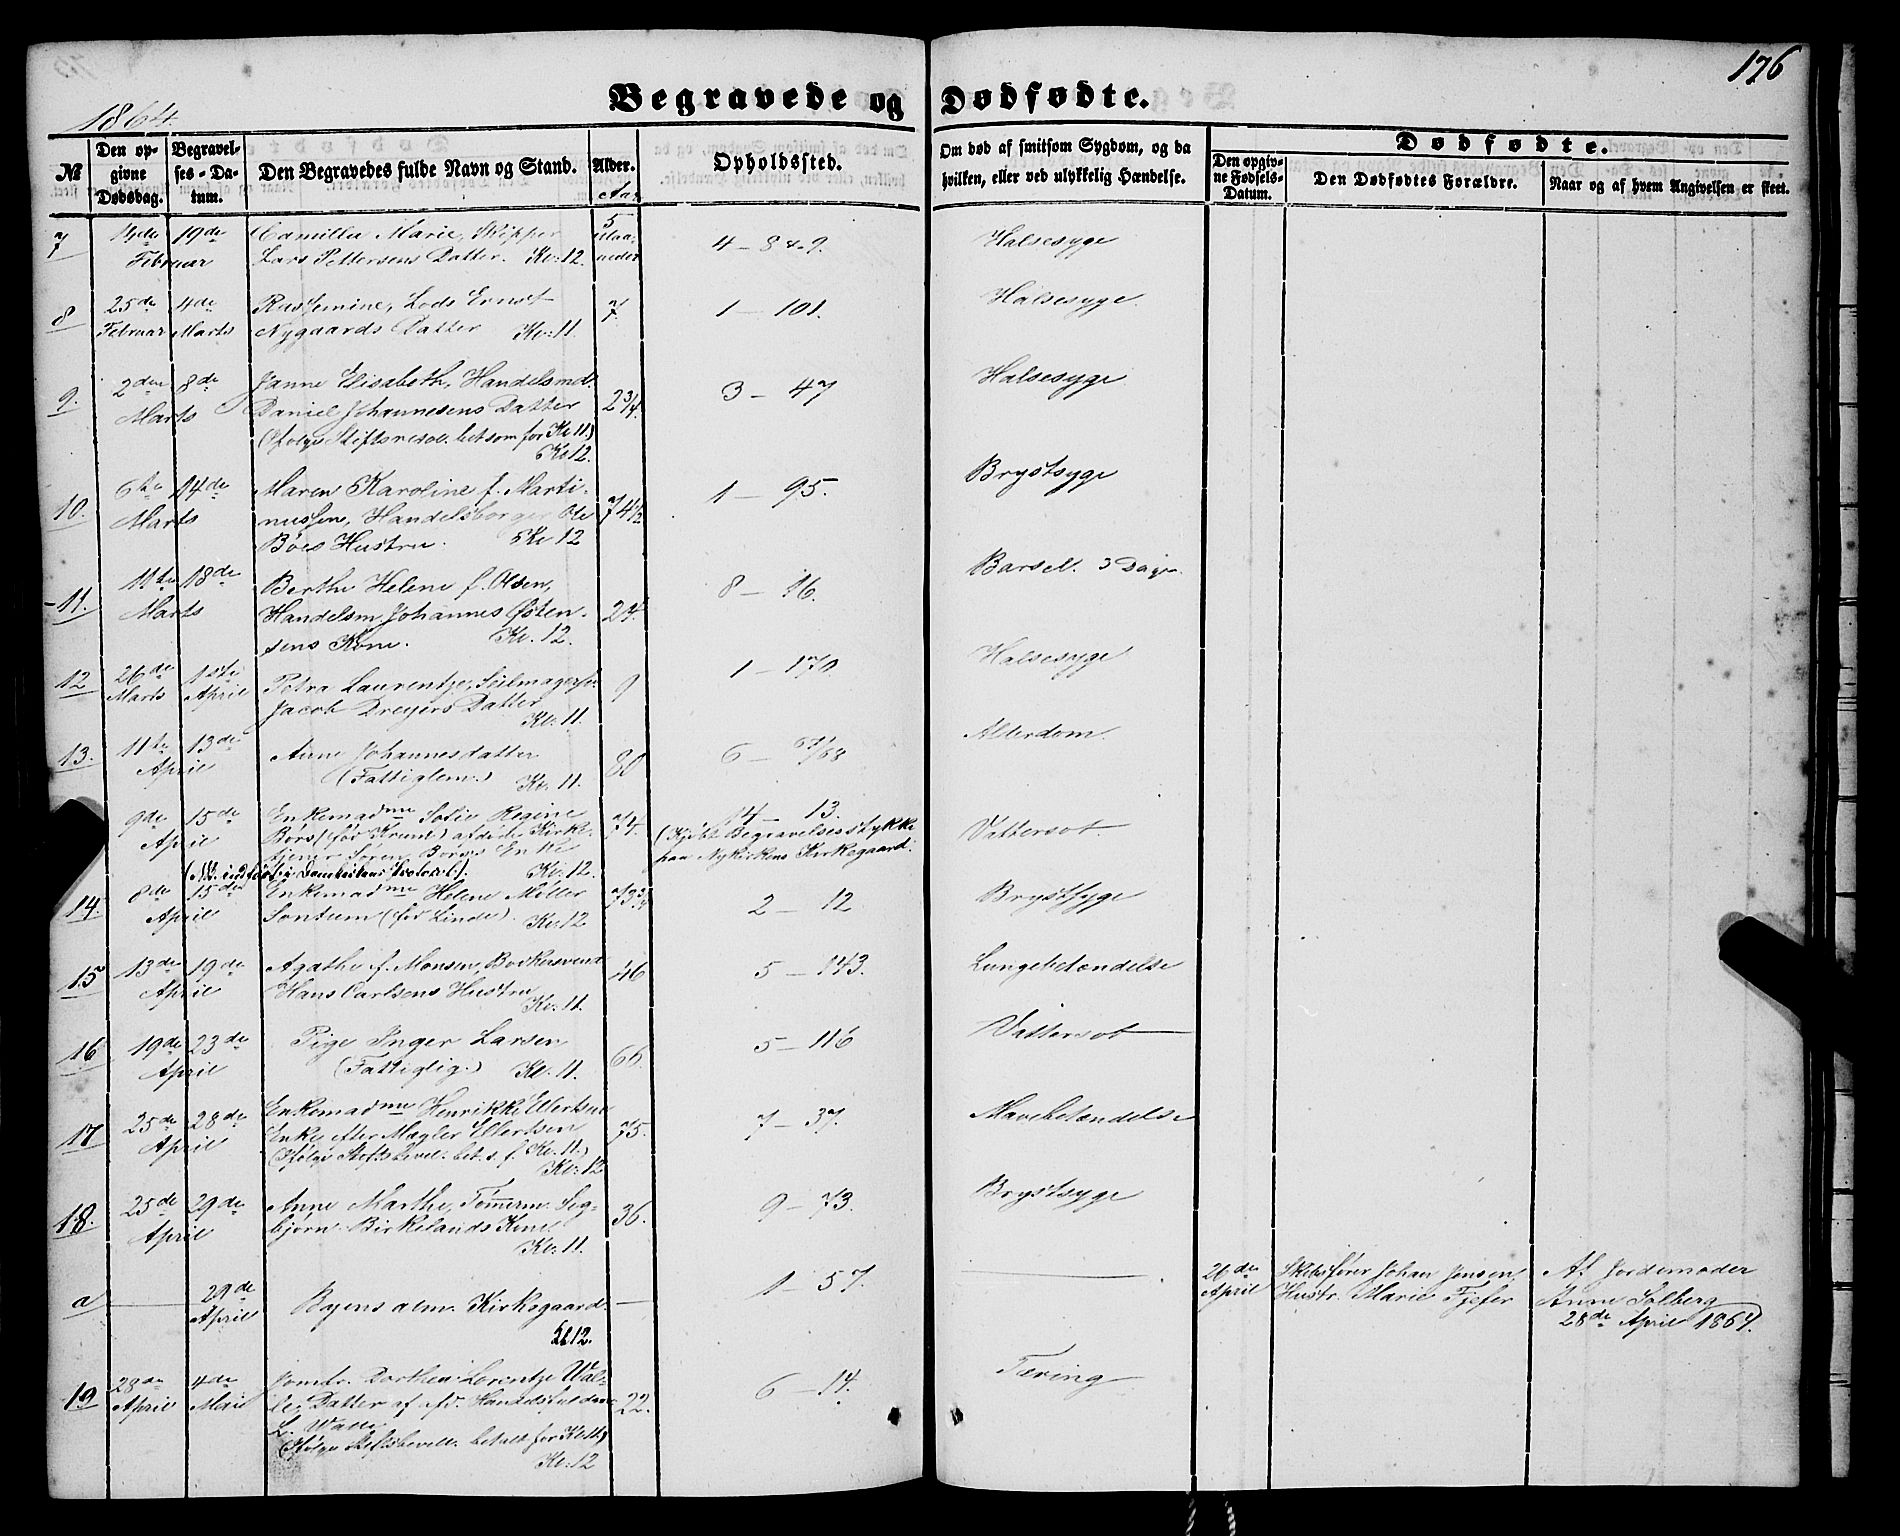 176
1864.
Begravede og Dødfødte.
№
Den opgivne Dødsdag.
Begravelses-Datum.
Den Begravedes fulde Navn og Stand.
Alder.
Aar
Opholdssted.
Om død af smitsom Sygdom, og da hvilken, eller ved ulykkelig Hændelse.
Dødfødte.
Den opgivne Fødsels-Datum.
Den Dødfødtes Forældre.
Naar og af hvem Angivelsen er skeet.
7 14de 19de Camilla Marie, Skipper 5 Maa- 4 - 8 & 9. Halsesyge
Februar Lars Pettersens Datter. Kl: 12. neder
8 25de 4de Rasmine, Lods Ernst 7. 1 - 101. Halsesyge
Februar Marts Nygaards Datter Kl: 11.
9. 2den 8de Janne Elisabeth, Handelsmd. 2 3/4. 3 - 47 Halsesyge
Marts Daniel Johannesens Datter
(Ifølge Stiftsresol. bet som for Kl 11.)
Kl 12.
10. 6te 14de Maren Karoline f. Marti- 74 1/2 1 - 95. Brystsyge
Marts nussen, Handelsborger Ole
Böes Hustru. Kl 12
11. 11te 18de Berthe Helene f. Olsen, 24. 8 - 16. Barsel. 3 Dage
Marts Handelsm. Johannes Østen-
sens Kone. Kl. 12.
12 26de 1ste Petra Laurentze, Seilmager 9 1 - 170 Halsesyge
Marts April Jacob Dreyers Datter
Kl: 11.
13. 11te 13de Anne Johannesdatter 80 6 - 67/68 Alderdom.
April (Fattiglem.) Kl: 11.
9de 15de Enkemadme Sofie Regine 77. 14 - 13. Vattersot.
April Børs (før Krum) afdøde Kirke- (Kjøbt Begravelsesstykke
tjener Søren Børses Enke paa Nykirkens Kirkegaard.
(NB. indført i Domkirkens Protocol). Kl: 12.
14. 8de 15de Enkemadme Helene Møller 73 2 - 12 Brystsyge
April Sontum (før Linde). Kl: 12
15 13de 19de Agathe f. Monsen, Bødkersvend 46 5 - 143. Lungebetændelse
April Hans Carlsens Hustru
Kl: 11.
16 19de 23de Pige Inger Larsen 66. 5 - 116 Vattersot
April (Fattiglig.) Kl. 11.
17 25de 28de Enkemadme Henrikke Ellertsen 75. 7 - 37. Mavebetændelse
April Enke efter Mægler Ellertsen
(Ifølge Stiftsbevil. bet. s. f. Kl. 11.)
Kl: 12
18. 25de 29de Anne Marthe, Tømerm. Sig- 36. 9 - 73. Brystsyge
April bjørn Birkelands Kone
Kl: 11.
a 29de Byens alm. Kirkegaard. 1 - 57. 26de Skibsfører Johan Jensen Af Jordemoder
April Kl 12. April Hustr. Marie Fjeser Anne Solberg
28de April 1864.
19 28de 4de Jomfr. Dorthea Lorentze Wal- 22. 6 - 14. Tæring
April Mai le, Datter af afd. Handelsfuldm.
L. Walle
(Ifølge Stiftsbevill. betalt for Kl 11)
Kl: 12